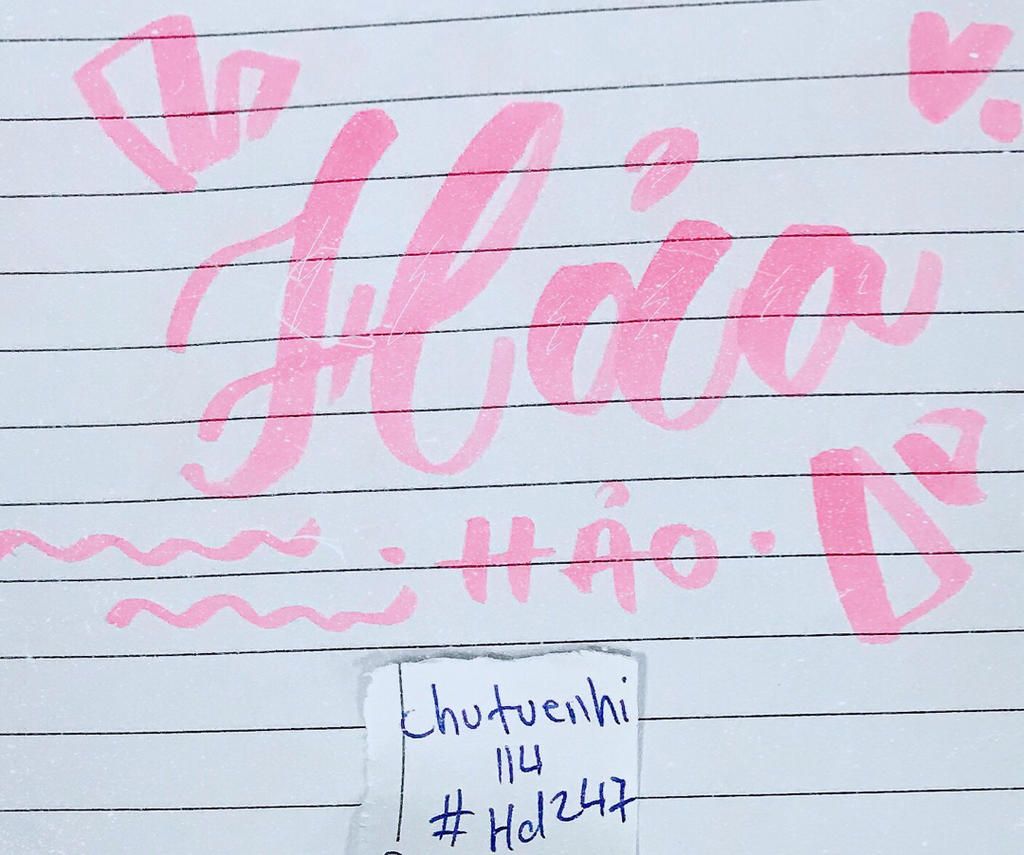 Hảo
• HẢO •
chutuenhi
114
#Hd247